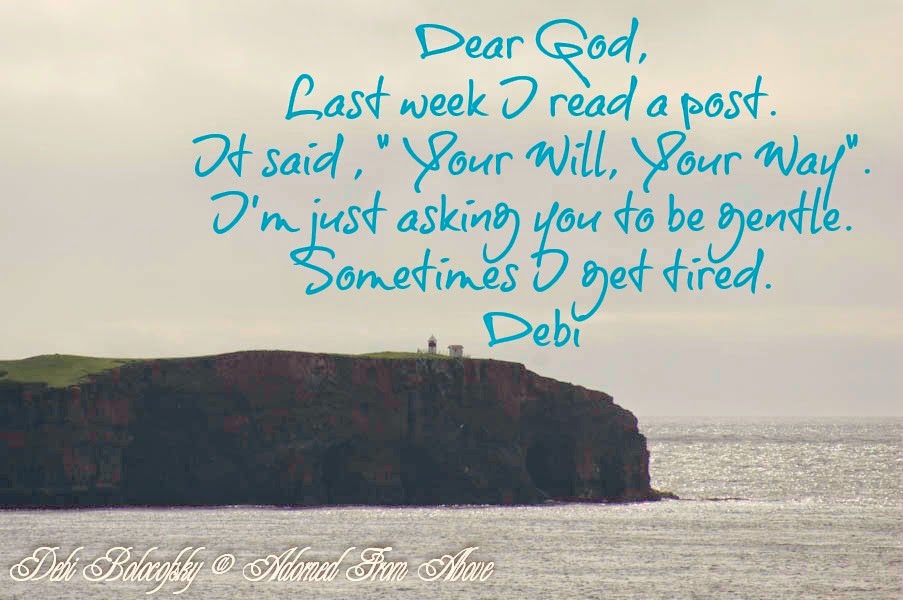 Dear God,
Last week I read a post.
It said, " Your Will, Your Way".
I'm just asking you to be gentle.
Sometimes I get tired.
Debi
Debi Bolocofsky @ Adorned From Above